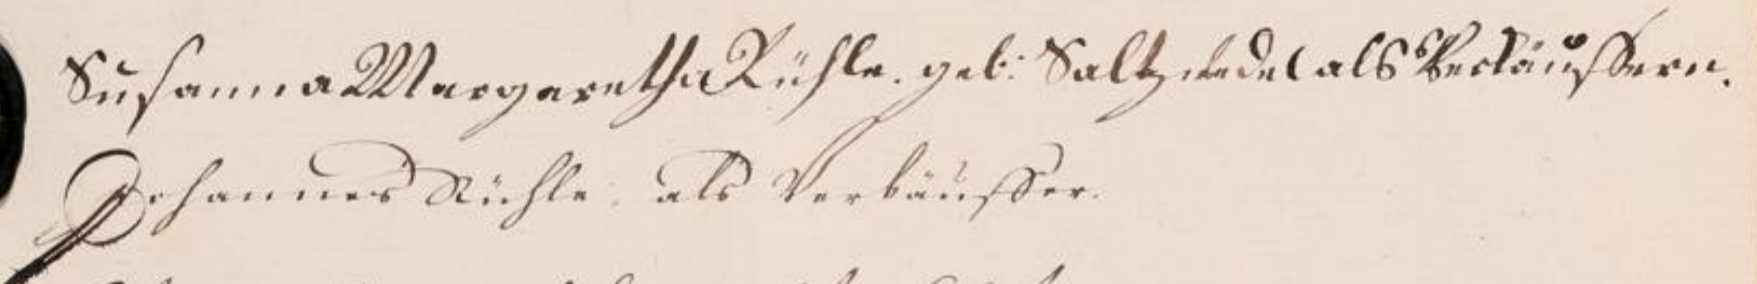 Susanna Margaretha Rühle. geb: Saltzwedel als Verkäuffern.
Johannes Rühle. als Verkäuffer.